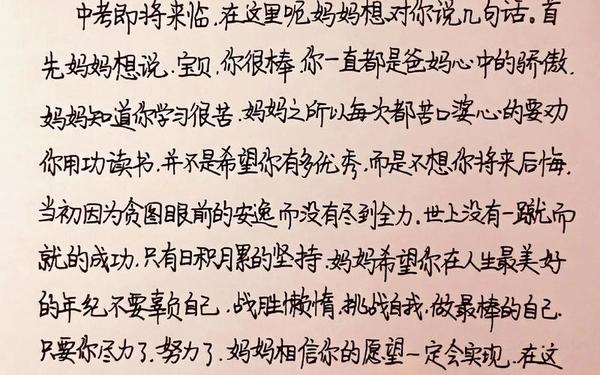 中考即将来临,在这里呢妈妈想对你说几句话。首
先妈妈想说.宝贝,你很棒.你一直都是爸妈心中的骄傲.
妈妈知道你学习很苦.妈妈之所以每次都苦口婆心的要劝
你用功读书,并不是希望你有多优秀,而是不想你将来后悔.
当初因为贪图眼前的安逸而没有尽到全力.世上没有一蹴而
就的成功,只有日积月累的坚持.妈妈希望你在人生最美好
的年纪.不要辜负自己.战胜懒惰.挑战自我.做最棒的自己.
只要你尽力了.努力了.妈妈相信你的愿望一定会实现.在这